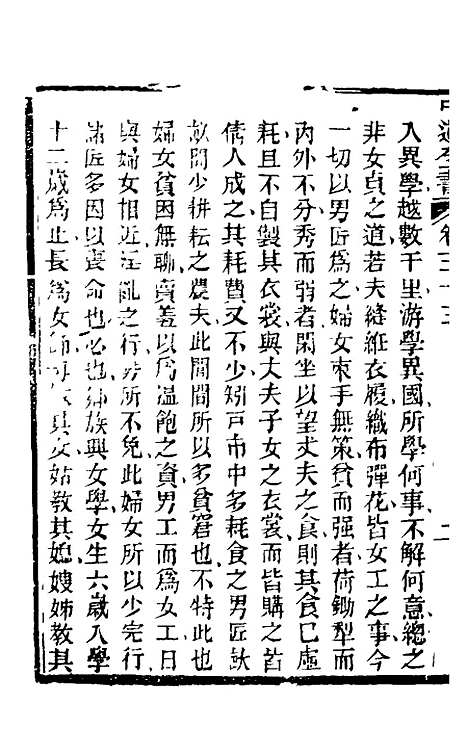 中道全書 卷三十三 二
入異學越數千里游學異國所學何事不解何意總之
非女貞之道若夫縫紝衣履織布彈花皆女工之事今
一切以男匠爲之婦女束手無策貧而强者荷鋤犁而
內外不分秀而弱者閑坐以望丈夫之食則其食已虛
耗且不自製其衣裳與丈夫子女之衣裳而皆購之若
倩人成之其耗費又不少矧戶市中多耗食之男匠畝
畝間少耕耘之農夫此閭閻所以多貧窘也不特此也
婦女貧因無聊賣羞以爲溫飽之資男工而爲女工日
與婦女相近淫亂之行 所不免此婦女所以少完行
匠多因以喪命也必也鄉族興女學女生六歲入學
十二歲爲止長爲女師 其女姑教其媳嫂姊教其